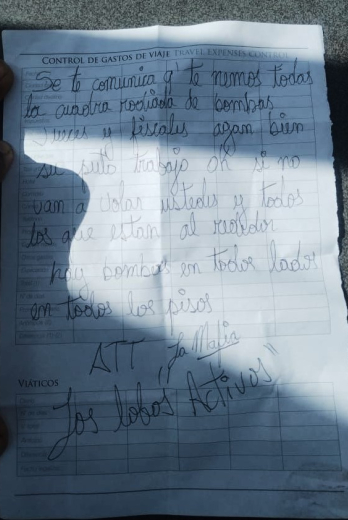 CONTROL DE GASTOS DE VIAJE TRAVEL EXPENSES CONTROL
Se te comunica q' te nemos todas
la cuadra rodiada de bombas
Jueces y fiscales agan bien
su puto trabajo oh si no
van a volar ustedes y todos
los que estan al rededor
hay bombas en todos lados
en todos los pisos
ATT "La Mafia
VIÁTICOS
Los lobos Activos"